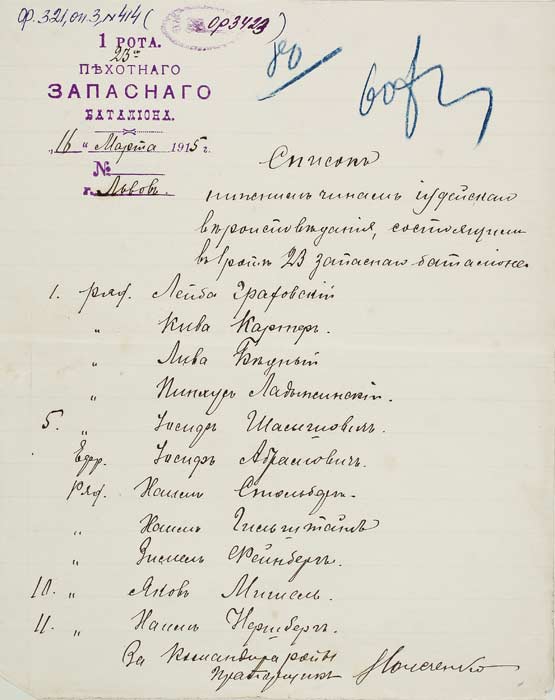 Ф. 321, оп. 3, № 414 (ОР3423)
1 РОТА.
23го
ПѢХОТНАГО
ЗАПАСНАГО
БАТАЛІОНА.
„16" Марта 1915 г.
№
г. Львовъ.
80
Списокъ
нижнимъ чинамъ іудейскаго
вѣроисповѣданія, состоящимъ
въ 1 ротѣ 23 запаснаго баталіона
1. ряд. Лейба Графовскій
„ Кива Картеръ.
„ Лива Бѣдный
„ Пинхусъ Ладыжинскій.
5. „ Іосифъ
Ефр. Іосифъ Абрамовичъ.
Ряд. Наамъ Стольберъ.
„ Наамъ
„ Зисмель Фейнбергъ.
10. „ Яковъ Мишель.
11. „ Наамъ Нернбергъ.
За Командира роты
Прапорщикъ